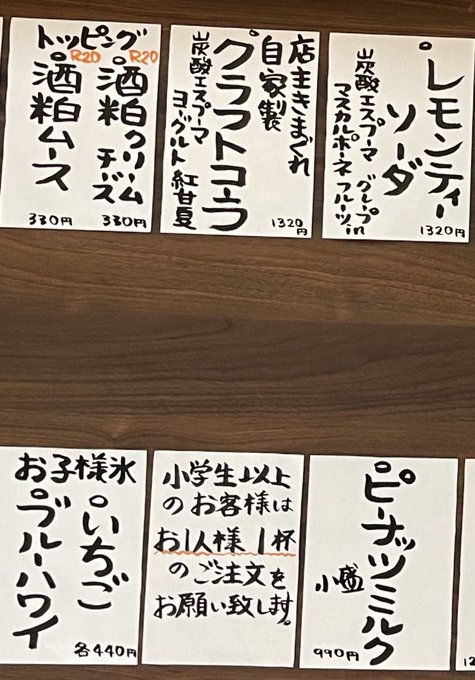 レモンティー
ソーダ
炭酸エスプーマ グレープ
マスカルポーネ フルーツin
1320円
店主きまぐれ
自家製
クラフトコーラ
炭酸エスプーマ
ヨーグルト 紅甘夏
1320円
トッピング
R20
酒粕クリームチーズ
330円
R20
酒粕ムース
330円
ピーナッツミルク
小盛
990円
小学生以上
のお客様は
お1人様1杯
のご注文を
お願い致します。
お子様氷
いちご
ブルーハワイ
各440円